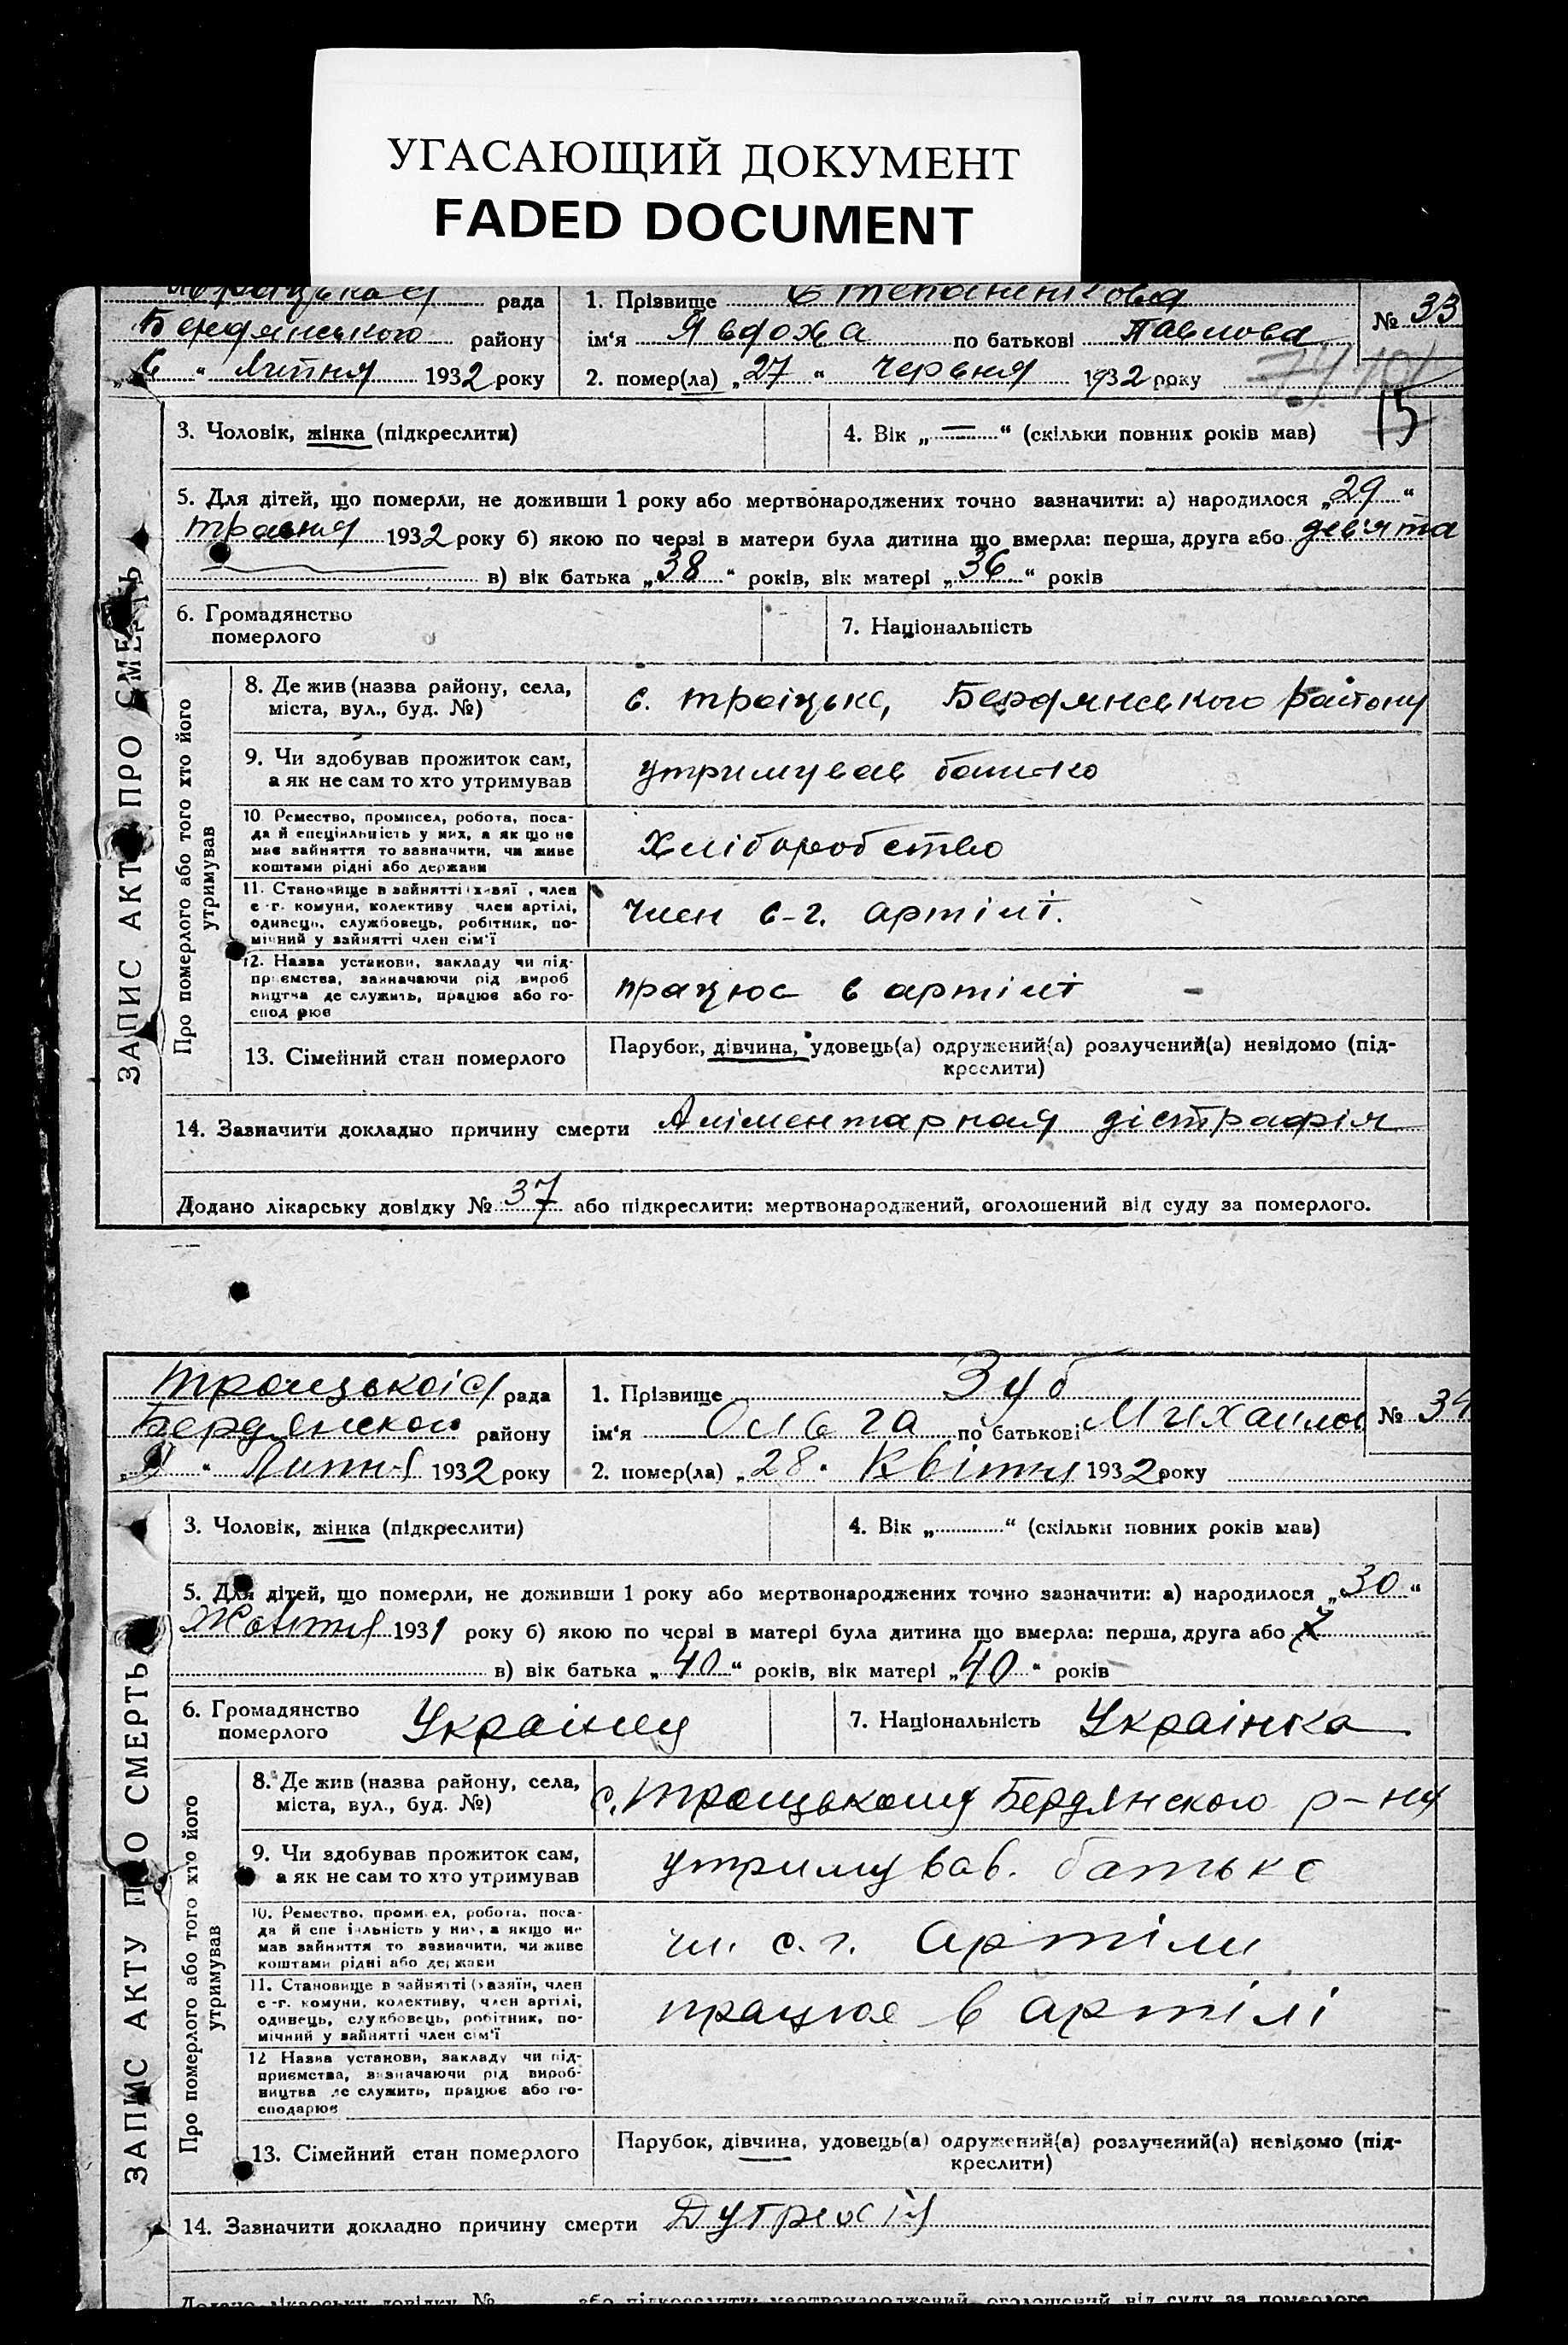 УГАСАЮЩИЙ ДОКУМЕНТ
FADED DOCUMENT
рада
1. Прізвище
№ 33
Бердянського району
ім'я Явдоха по батькові Павлова
„6“ Липня 1932 року
2. помер(ла) „27“ Червня 1932 року
15
3. Чоловік, жінка (підкреслити)
4. Вік „—“ (скільки повних років мав)
5. Для дітей, що померли, не доживши 1 року або мертвонароджених точно зазначити: а) народилося „29“
травня 1932 року б) якою по черзі в матери була дитина що вмерла: перша, друга або дев'ята
в) вік батька „38“ років, вік матері „36“ років
6. Громадянство
померлого
7. Національність
ЗАПИС АКТУ ПРО СМЕРТЬ
Про померлого або того хто його
утримував
8. Де жив (назва району, села,
міста, вул., буд. №)
с. Троіцьке, Бердянського району
9. Чи здобував прожиток сам,
а як не сам то хто утримував
утримував батько
10. Ремество, промисел, робота, поса-
да й спеціяльність у них, а як що не
має зайняття то зазначити, чи живе
коштами рідні або держави
Хліборобство
11. Становище в зайнятті (хазяї , член
с-г. комуни, колективу член артілі,
одинець, службовець, робітник, по-
мічний у зайнятті член сім'ї
член с-г. артілі.
12. Назва установи, закладу чи під-
приємства, зазначаючи рід вироб
ництва де служить, працює або го-
сподарює
працює в артілі -
13. Сімейний стан померлого
Парубок, дівчина, удовець(а) одружений(а) розлучений(а) невідомо (під-
креслити)
14. Зазначити докладно причину смерти Аліментарная дістрафія
Додано лікарську довідку № 37 або підкреслити: мертвонароджений, оголошений від суду за померлого.
рада
1. Прізвище Зуб
Бердянского району
ім'я Ольга по батькові Михайлов
№ 34
Липня 1932 року
2. помер(ла) „28“ Квітня 1932 року
3. Чоловік, жінка (підкреслити)
4. Вік „ “ (скільки повних років мав)
5. Для дітей, що померли, не доживши 1 року або мертвонароджених точно зазначити: а) народилося „30“
Жовтня 1931 року б) якою по черзі в матері була дитина що вмерла: перша, друга або
в) вік батька „40“ років, вік матері „40“ років
6. Громадянство
померлого
7. Національність Украінка
ЗАПИС АКТУ ПРО СМЕРТЬ
Про померлого або того хто його
утримував
8. Де жив (назва району, села,
міста, вул., буд. №)
с. Троицькому Бердянского р-ну
9. Чи здобував прожиток сам,
а як не сам то хто утримував
утримував. батько
10. Ремество, промисел, робота, поса-
да й спеціяльність у них, а якщо не
мав зайняття то зазначити, чи живе
коштами рідні або держави
чл. с. г. Артіли
11. Становище в зайнятті (хазяїн, член
с-г. комуни, колективу, член артілі,
одинець, службовець, робітник, по-
мічний у зайнятті член сім'ї
працює в артілі
12 Назва установи, закладу чи під-
приємства, зазначаючи рід вироб-
ництва де служить, працює або го-
сподарює
13. Сімейний стан померлого
Парубок, дівчина, удовець(а) одружений(а) розлучений(а) невідомо (під-
креслити)
14. Зазначити докладно причину смерти
Додано лікарську довідку № або підкреслити: мертвонароджений, оголошений від суду за померлого